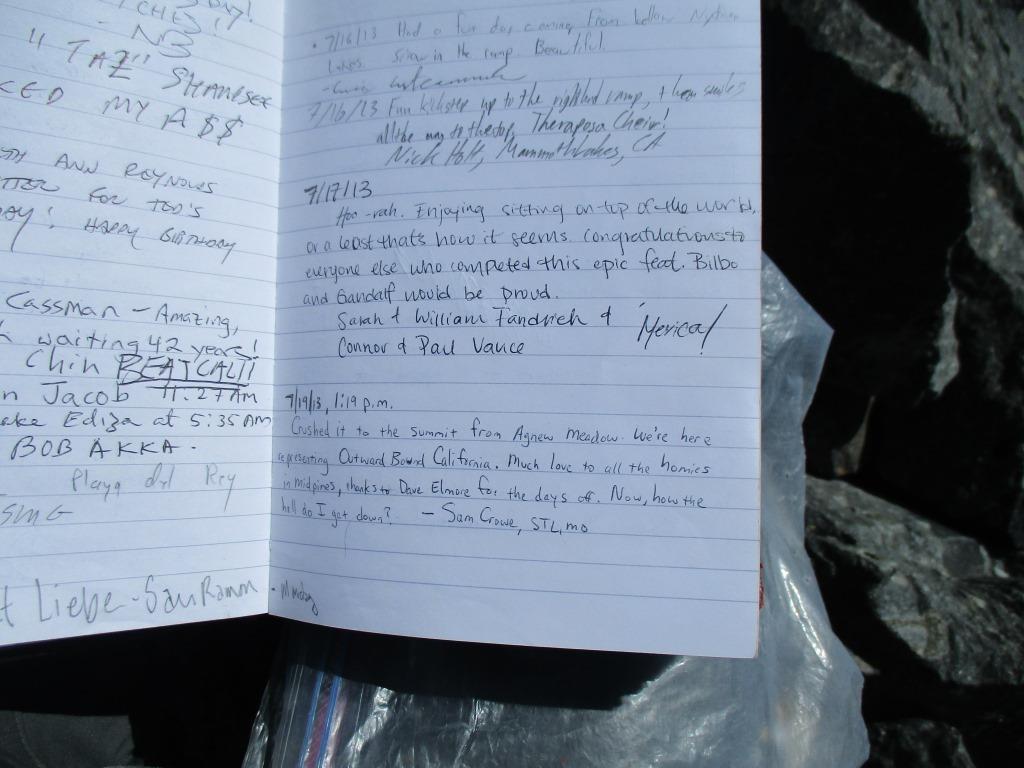 DAY!
CHES!!
N3
" TAZ" Shransee
CED MY A$$
ANN REYNOLDS
FOR TOD'S
HAPPY BIRTHDAY
Cassman - Amazing,
waiting 42 years!
Chin BEAT CAL!!
n Jacob 11:27 Am
ake Ediza at 5:35 AM
BOB AKKA.
Playa del Rey
SMG
t Liebe - San Ramon
• 7/16/13 Had a fun day coming from below Nydiver
Lakes. Snow in the ramp. Beautiful.
7/16/13 Fun kickstep up to the right hand ramp, then smiles
all the way to the top,
Nick Holt, Mammoth Lakes, CA
7/17/13
Hoo-rah. Enjoying sitting on top of the world,
or a least thats how it seems. Congratulations to
everyone else who competed this epic feat. Bilbo
and Gandalf would be proud.
Sarah & William Fandrich &
Connor & Paul Vance
'Merica!
7/19/13, 1:19 p.m.
Crushed it to the summit from Agnew Meadow. We're here
representing Outward Bound California. Much love to all the homies
in midpines, thanks to Dave Elmore for the days off. Now, how the
hell do I get down? - Sam Crowe, STL, mo